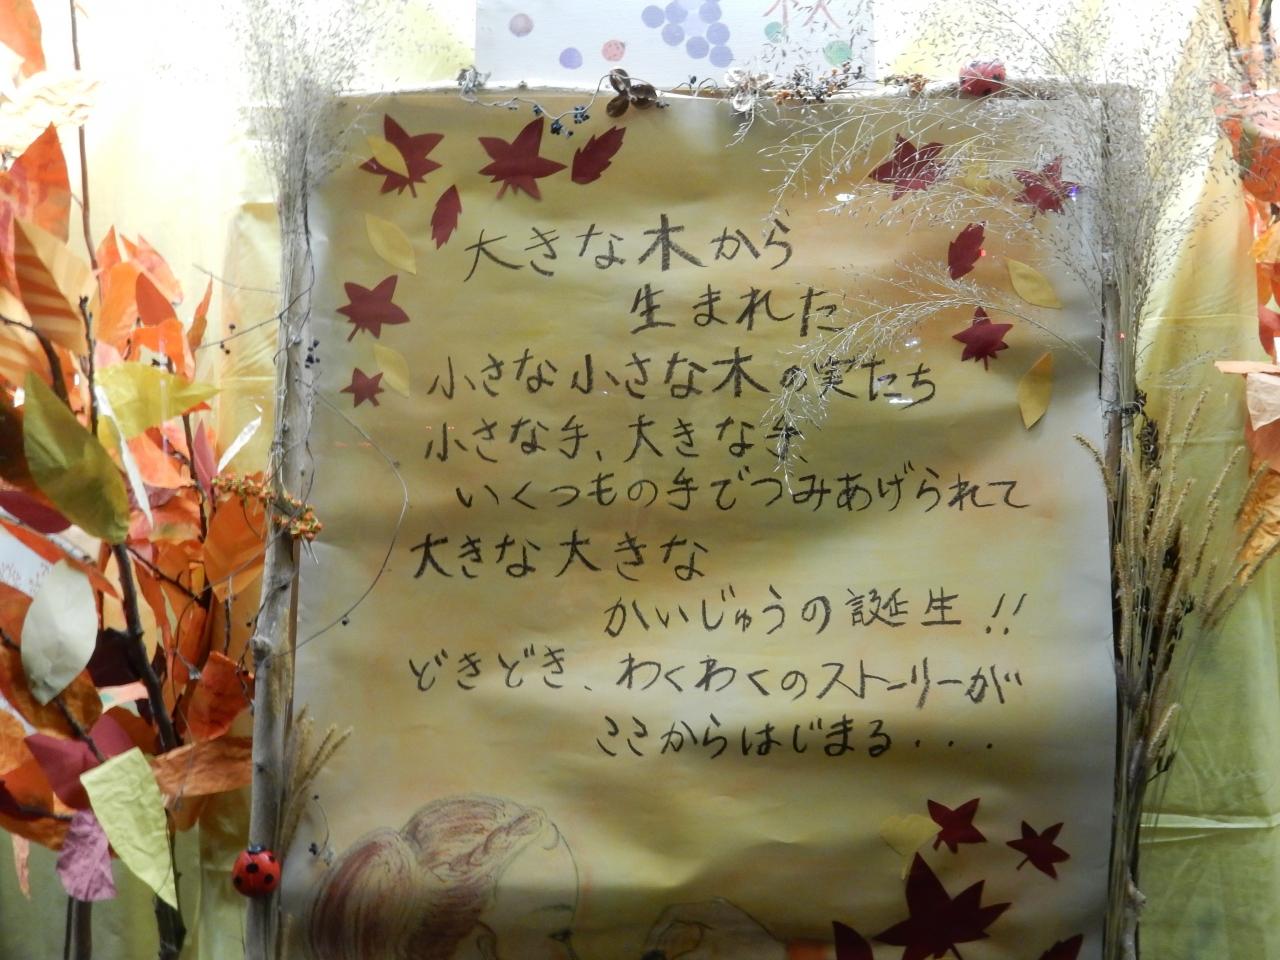 大きな木から
生まれた
小さな小さな木の実たち
小さな手、大きな手、
いくつもの手でつみあげられて
大きな大きな
かいじゅうの誕生!!
どきどき、わくわくのストーリーが
ここからはじまる・・・・